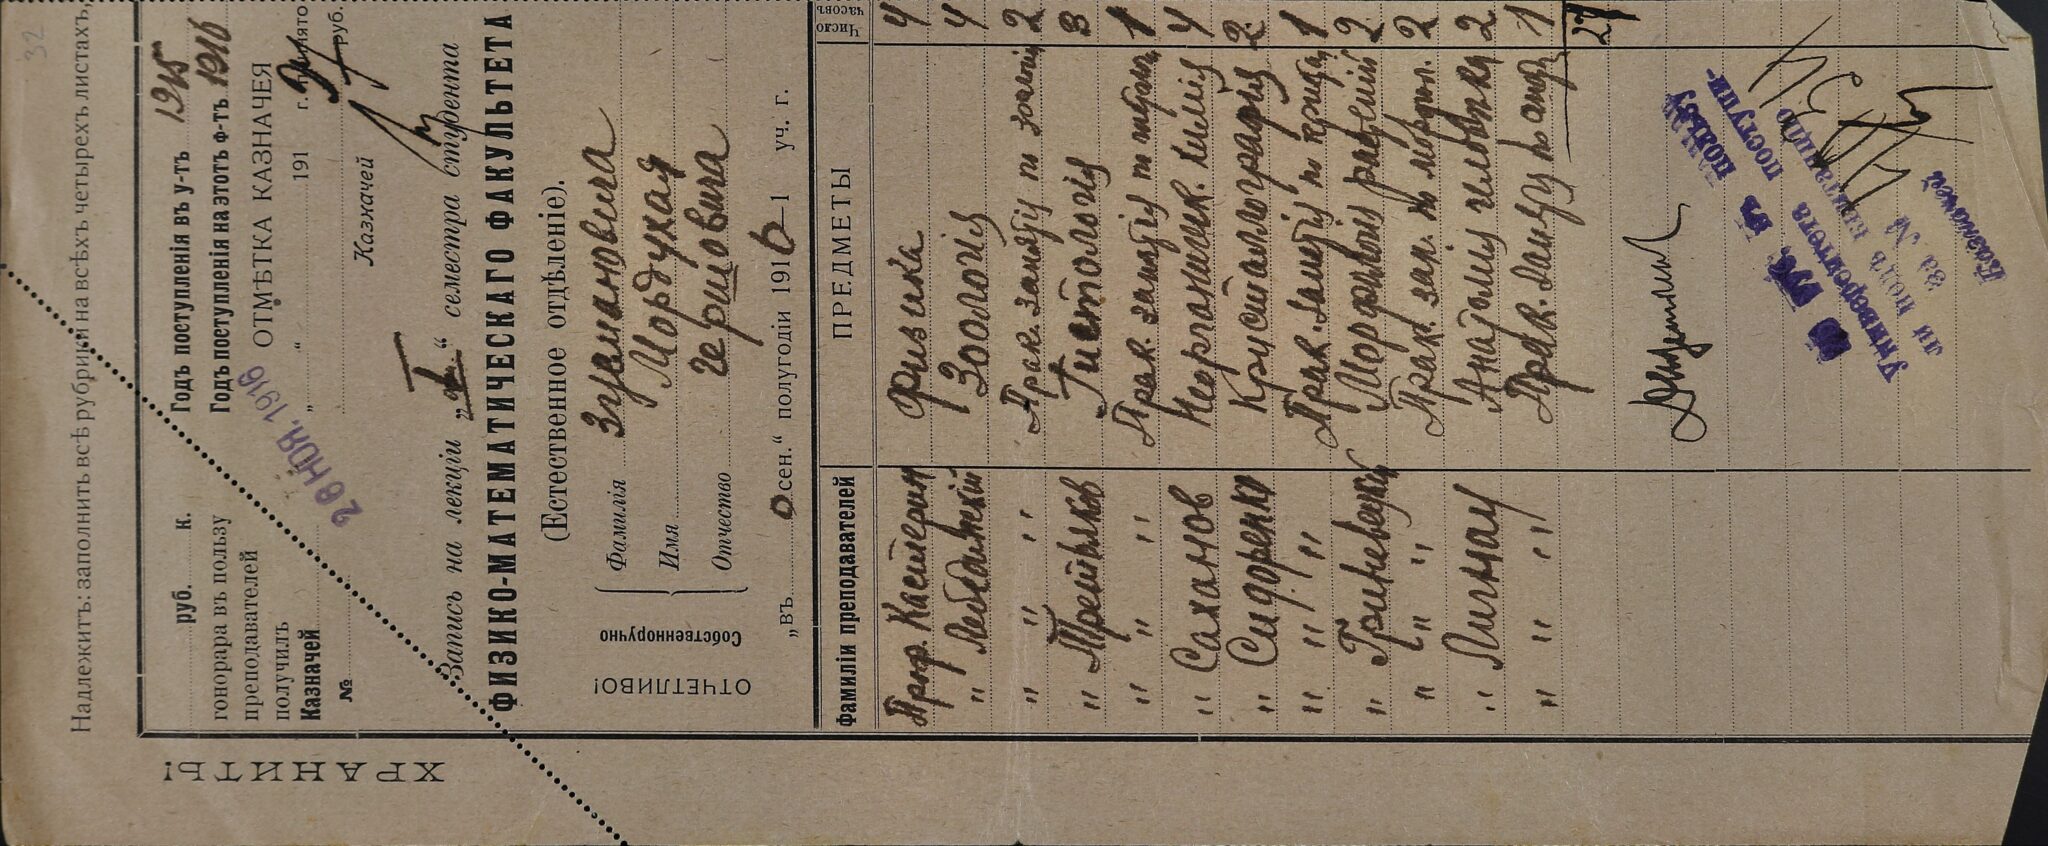 32
Надлежитъ: заполнить всѣ рубрики на всѣхъ четырехъ листахъ.
ХРАНИТЬ!
руб. к.
гонорара въ пользу
преподавателей
получилъ
Казначей
№
Годъ поступленія въ у-тъ 1915
Годъ поступленія на этотъ ф-тъ 1916
26 НОЯ. 1916
ОТМѢТКА КАЗНАЧЕЯ
„ “ 191 г. принято
руб.
Казначей
Запись на лекціи „I“ семестра студента
ФИЗИКО-МАТЕМАТИЧЕСКАГО ФАКУЛЬТЕТА
(Естественное отдѣленіе).
ОТЧЕТЛИВО!
Собственноручно
Фамилія Зусмановича
Имя Мордухая
Отчество Гершовича
„въ осен.“ полугодіи 1916-1 уч. г.
Фамиліи преподавателей ПРЕДМЕТЫ Число часовъ
Проф. Кастеринъ Физика 4
" Лебединскій Зоологія 4
" " " Прак. занятія по зоологіи 2
" Третьяковъ Гистологія 3
" " " Прак. занятія 1
" Сахановъ Неорганич. химія 4
" Сидоренко Кристаллографія 2
" " " Прак. занятія по 1
" Гриневецкій Морфологія растеній 2
" " " Прак. зан. по морфол. 2
" Лигнау Анатомія человѣка 2
" " " Прак. занят. по анат. 1
27
руб. въ пользу
Университета поступи-
ли подъ квитанцію
за №
Казначей